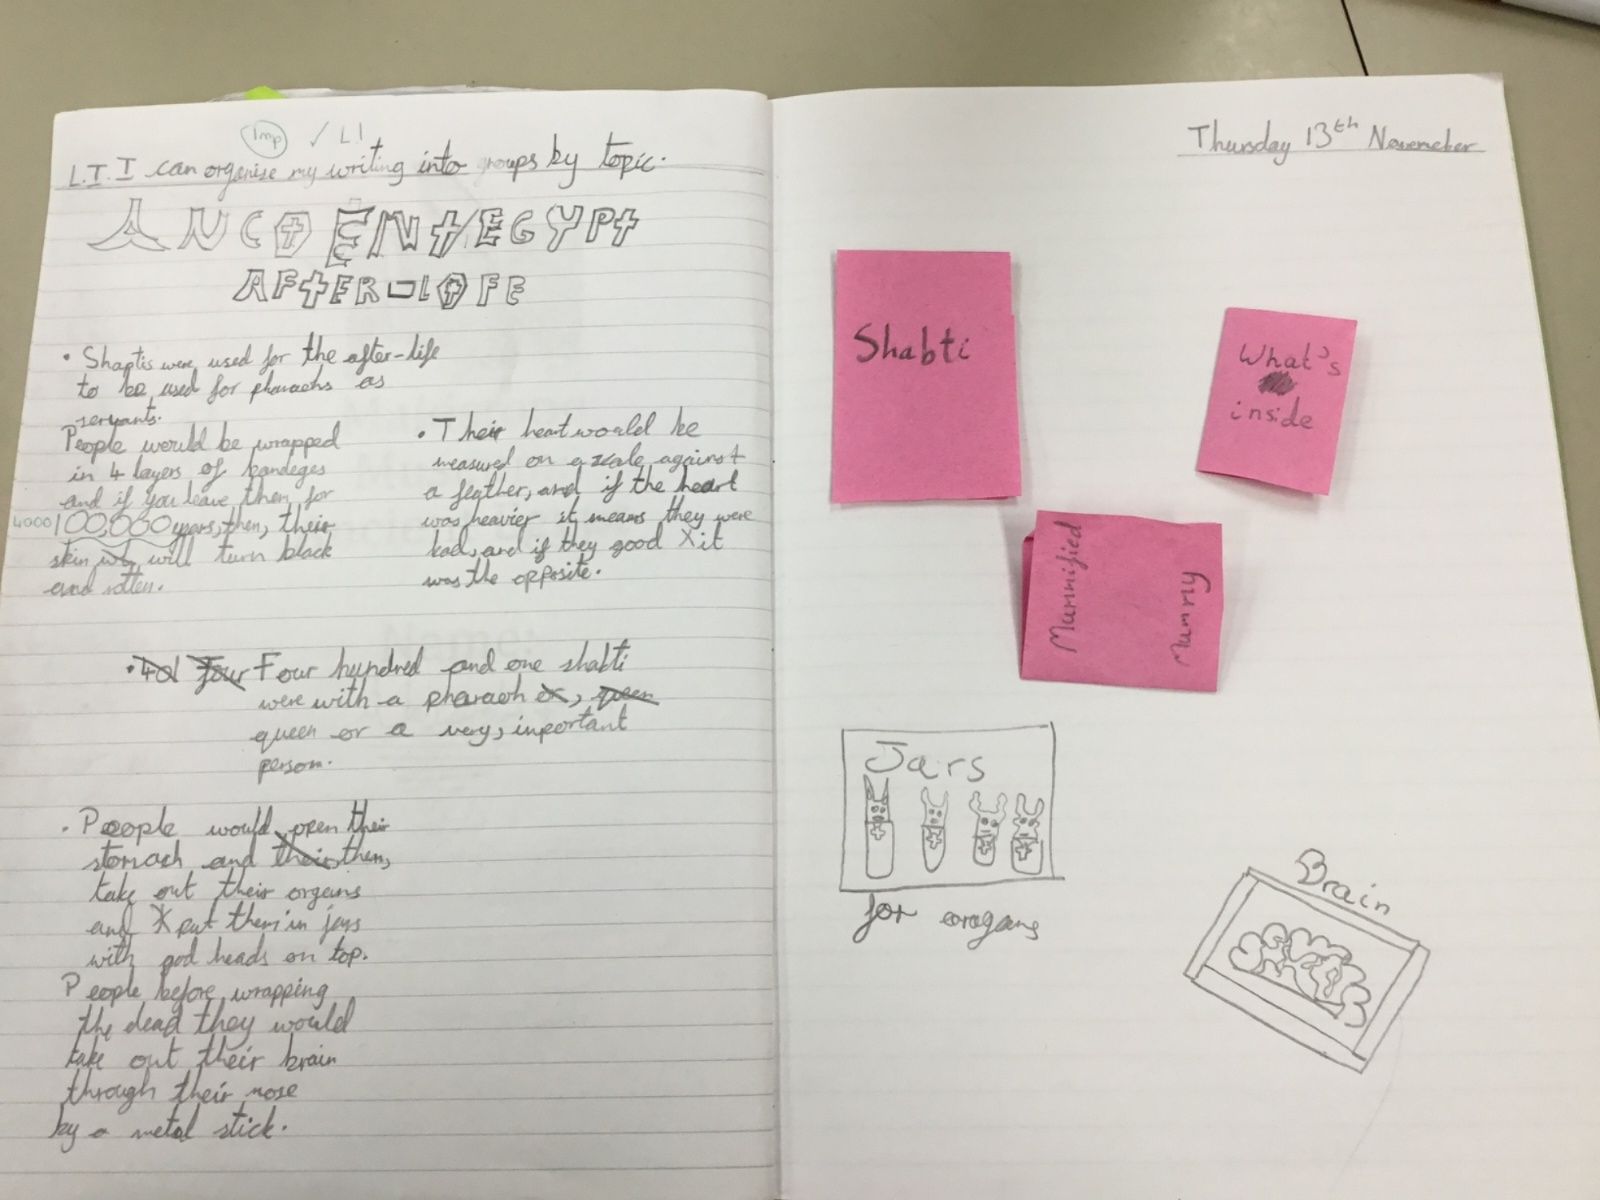 Imp ✓ LI
L.I. I can organise my writing into groups by topic.
ANCIENT EGYPT
AFTER-LIFE
• Shaptis were used for the after-life
to be used for pharaohs as
servants.
People would be wrapped
in 4 layers of bandeges
and if you leave them for
4000 100,000 years, then, their
skin wi will turn black
and rotten.
• Their heart would be
measured on a scale against
a feather, and if the heart
was heavier it means they were
bad, and if they good it
was the opposite.
• 401 Four Four hundred and one shabti
were with a pharaoh or, queen
queen or a very, inportant
person.
• People would open their
stomach and their then,
take out their organs
and put them in jars
with god heads on top.
People before wrapping
the dead they would
take out their brain
through their nose
by a metal stick.
Thursday 13th Novemeber
Shabti
What's
inside
Mummified
Mummy
Jars
for oragans
Brain